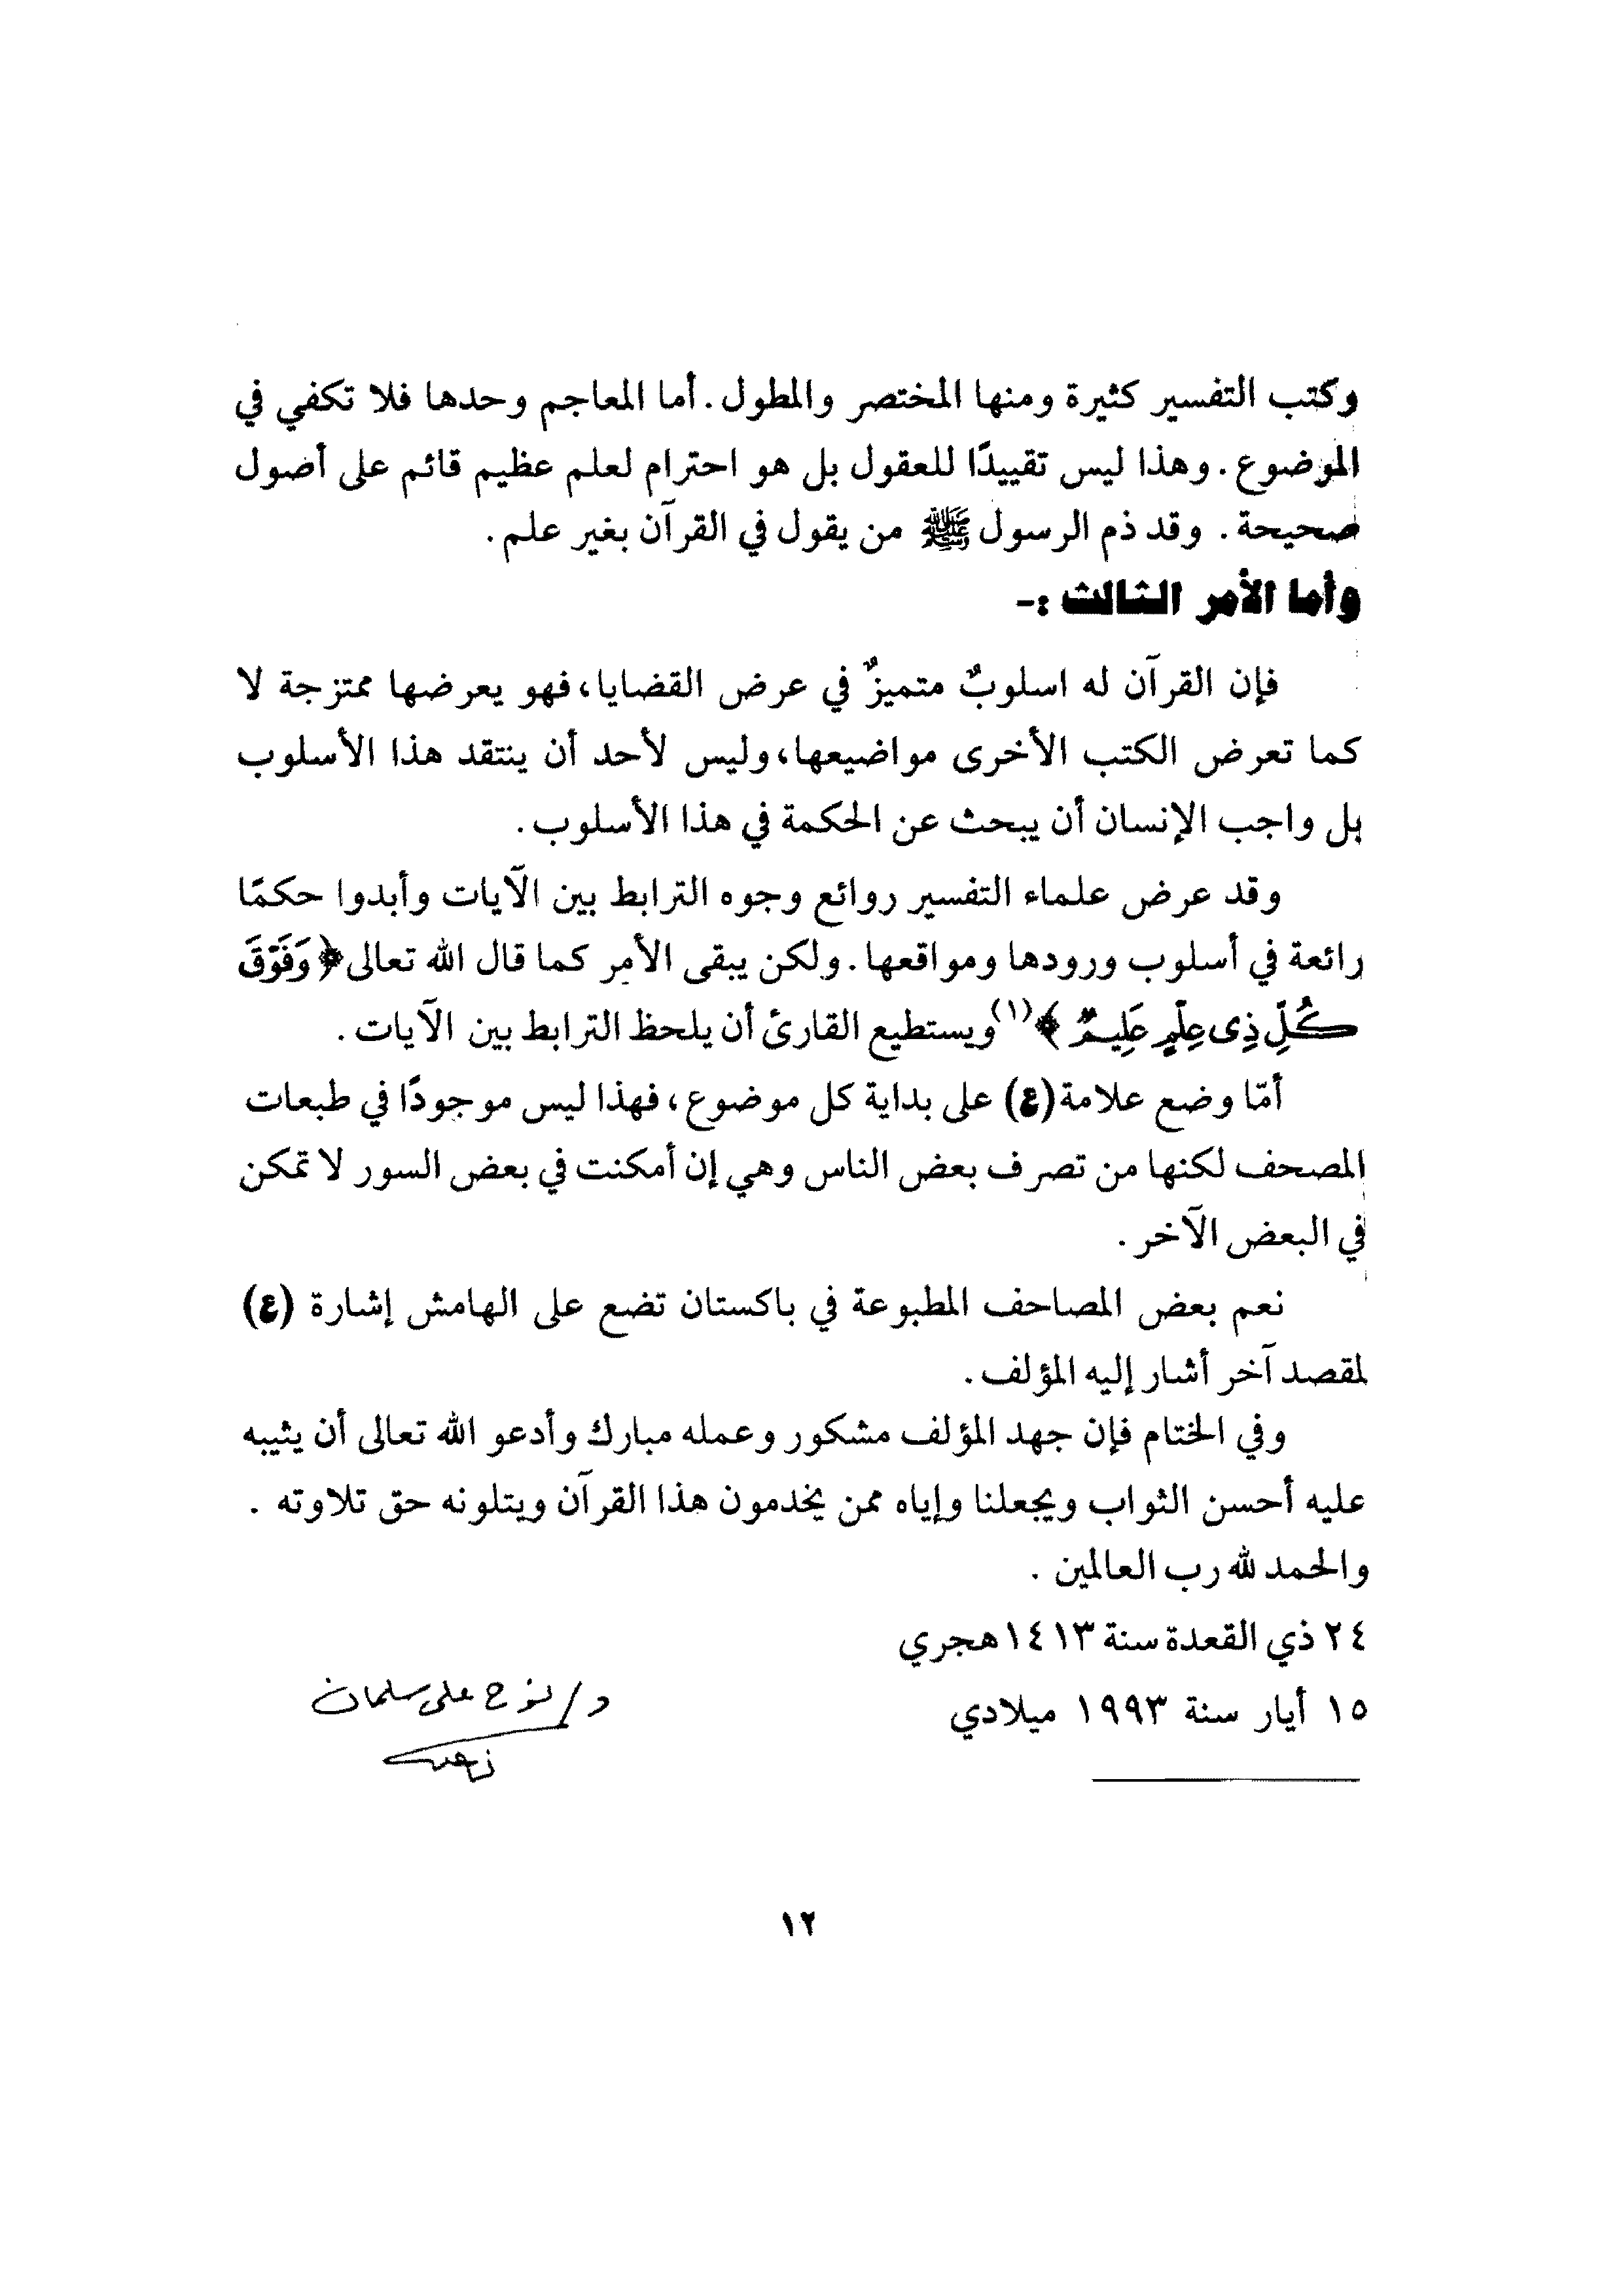 وكتب التفسير كثيرة ومنها المختصر والمطول. أما المعاجم وحدها فلا تكفي في
الموضوع. وهذا ليس تقييدًا للعقول بل هو احترام لعلم عظيم قائم على أصول
صحيحة. وقد ذم الرسول ﷺ من يقول في القرآن بغير علم.
وأما الأمر الثالث :-
فإن القرآن له اسلوبٌ متميزٌ في عرض القضايا، فهو يعرضها ممتزجة لا
كما تعرض الكتب الأخرى مواضيعها، وليس لأحد أن ينتقد هذا الأسلوب
بل واجب الإنسان أن يبحث عن الحكمة في هذا الأسلوب.
وقد عرض علماء التفسير روائع وجوه الترابط بين الآيات وأبدوا حكمًا
رائعة في أسلوب ورودها ومواقعها. ولكن يبقى الأمر كما قال الله تعالى ﴿وَفَوْقَ
كُلِّ ذِى عِلْمٍ عَلِيمٌ﴾(١) ويستطيع القارئ أن يلحظ الترابط بين الآيات.
أمّا وضع علامة (ع) على بداية كل موضوع، فهذا ليس موجودًا في طبعات
المصحف لكنها من تصرف بعض الناس وهي إن أمكنت في بعض السور لا تمكن
في البعض الآخر.
نعم بعض المصاحف المطبوعة في باكستان تضع على الهامش إشارة (ع)
لمقصد آخر أشار إليه المؤلف.
وفي الختام فإن جهد المؤلف مشكور وعمله مبارك وأدعو الله تعالى أن يثيبه
عليه أحسن الثواب ويجعلنا وإياه ممن يخدمون هذا القرآن ويتلونه حق تلاوته .
والحمد لله رب العالمين .
٢٤ ذي القعدة سنة ١٤١٣ هجري
د/ نوح علي سلمان
١٥ أيار سنة ١٩٩٣ ميلادي
١٢